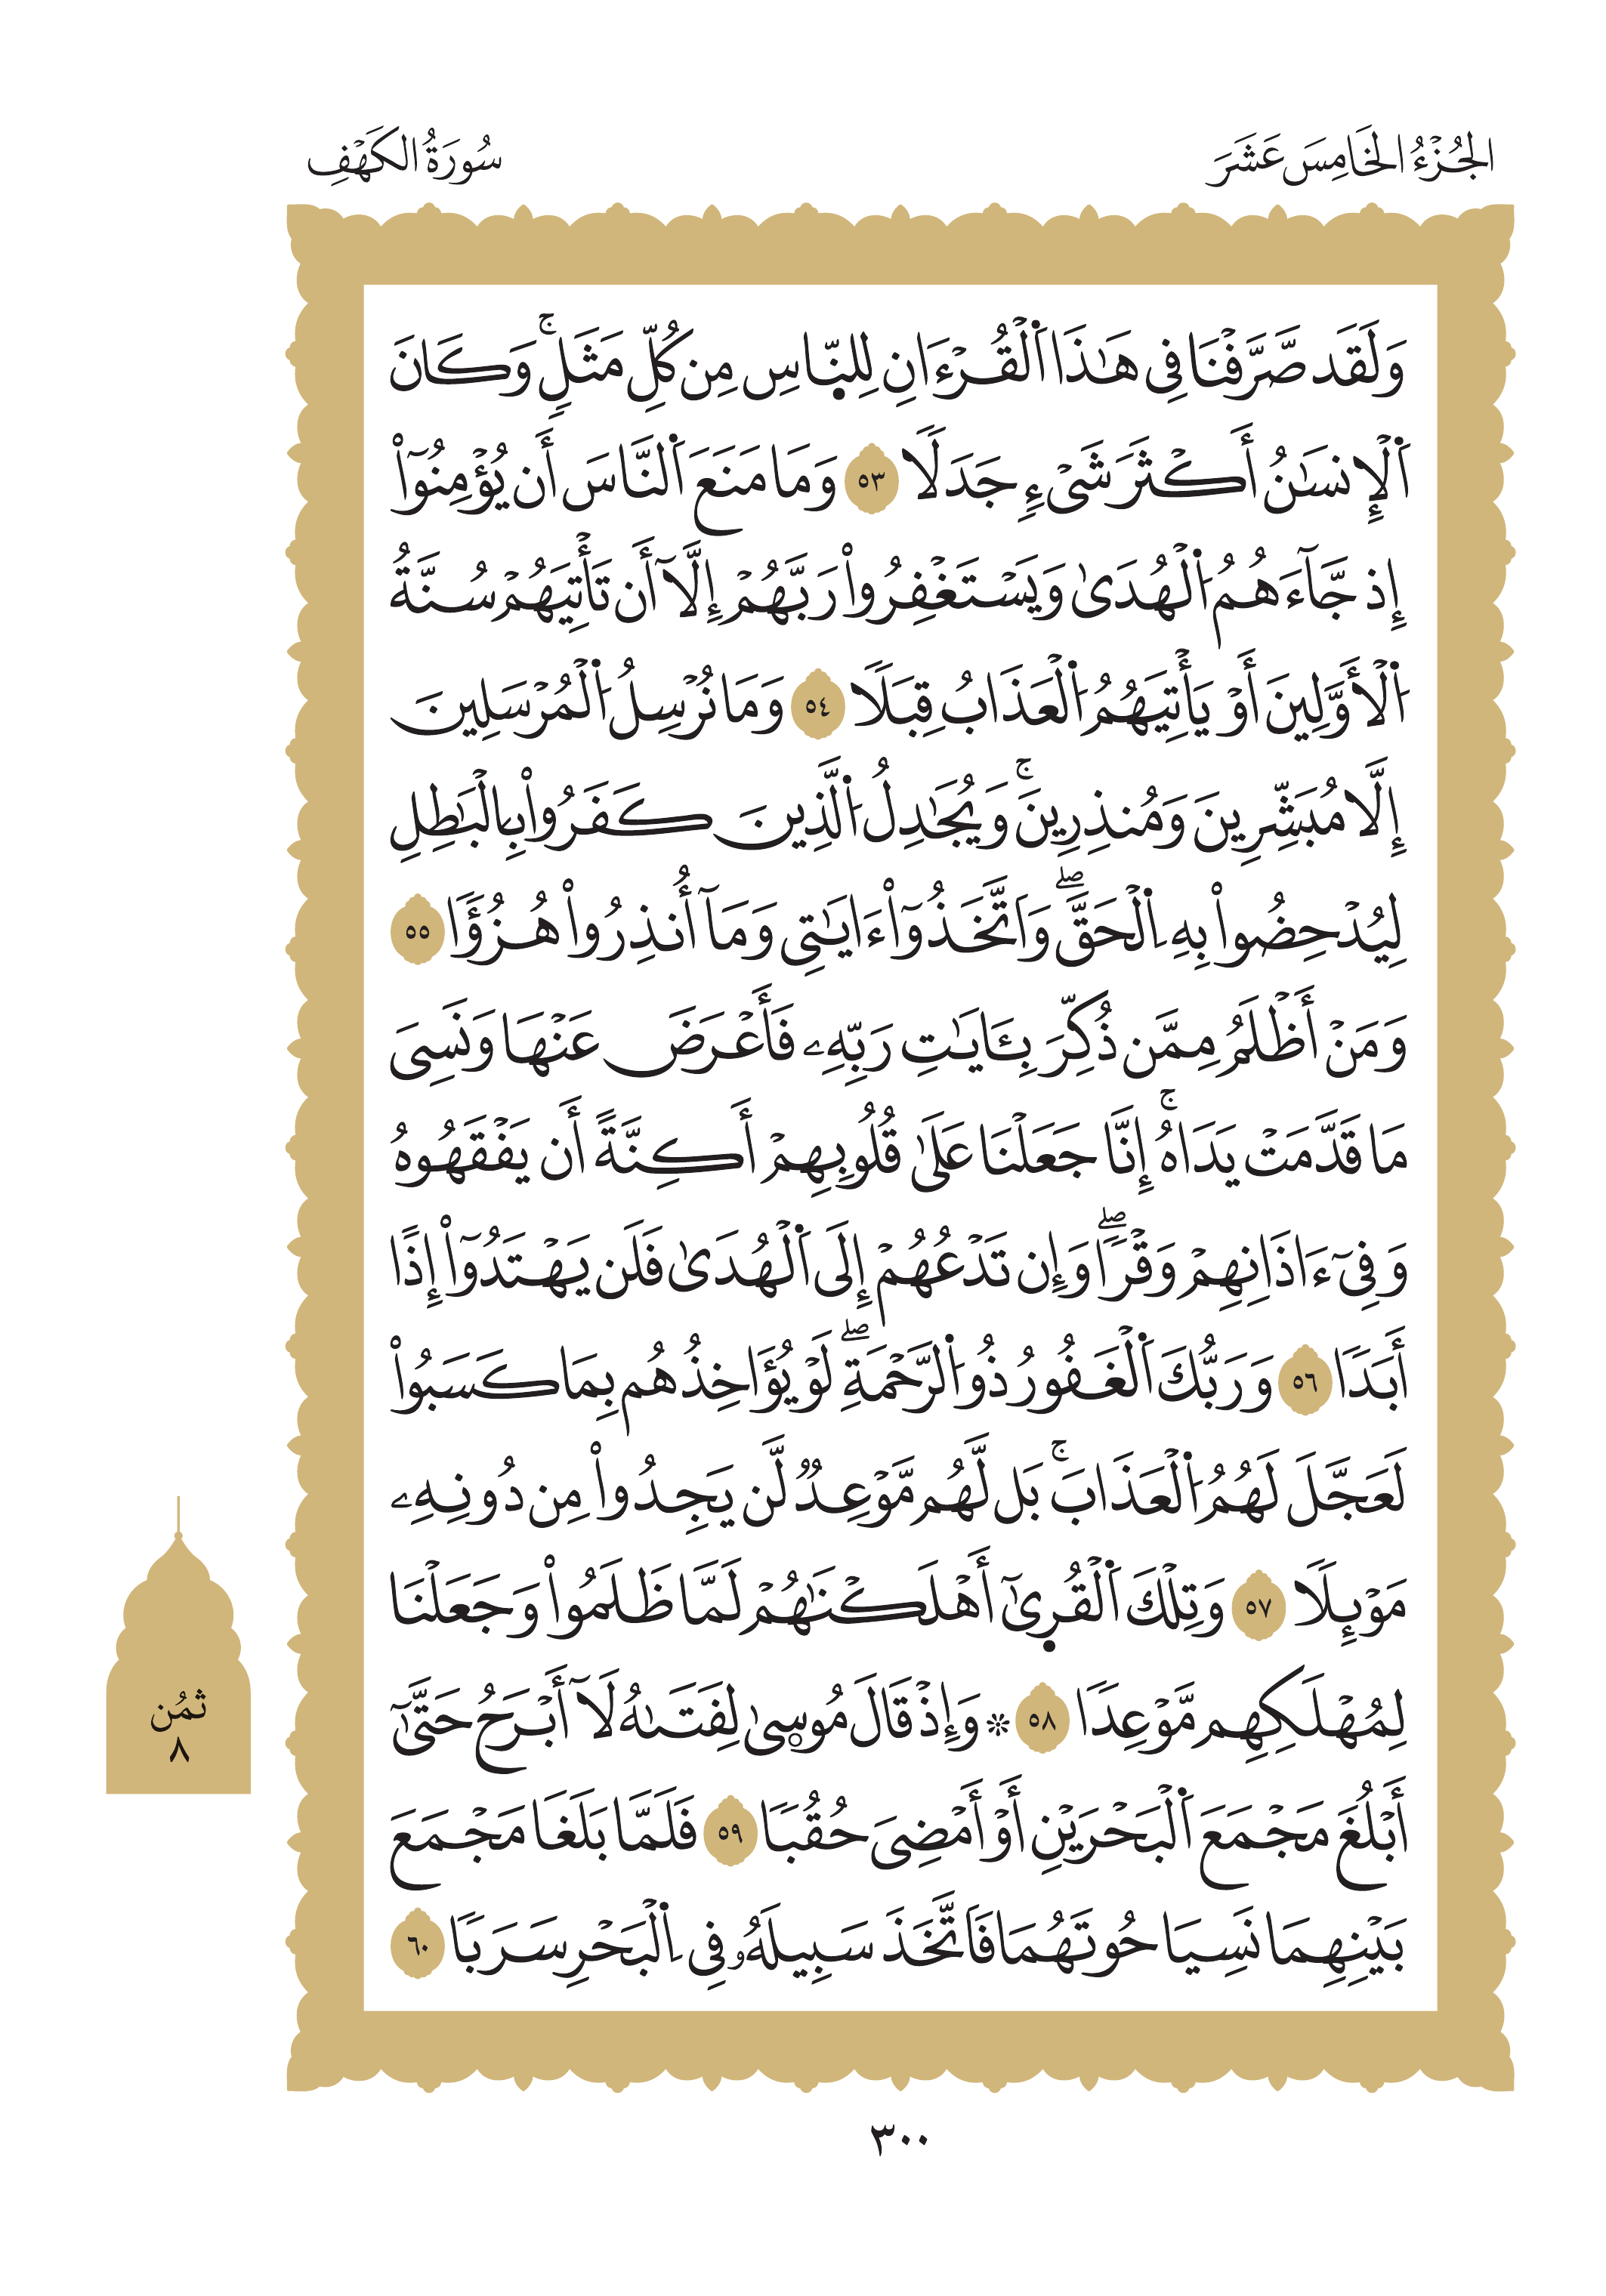 الجُزْءُ الخَامِسَ عَشَرَ
سُورَةُ الكَهْفِ
وَلَقَد صَّرَّفْنَا فِي هَٰذَا اَ۬لْقُرْءَانِ لِلنّ۪اسِ مِن كُلِّ مَثَلٖۚ وَكَانَ
اَ۬لْإِنسَٰنُ أَكْثَرَ شَيْءٖ جَدَلٗا ٥٣ وَمَا مَنَعَ اَ۬لنَّاسَ أَن يُؤْمِنُوٓاْ
إِذ جَّآءَهُمُ اُ۬لْهُدَىٰ وَيَسْتَغْفِرُواْ رَبَّهُمْ إِلَّآ أَن تَأْتِيَهُمْ سُنَّةُ
اُ۬لْأَوَّلِينَ أَوْ يَأْتِيَهُمُ اُ۬لْعَذَابُ قِبَلٗا ٥٤ وَمَا نُرْسِلُ اُ۬لْمُرْسَلِينَ
إِلَّا مُبَشِّرِينَ وَمُنذِرِينَۚ وَيُجَٰدِلُ اُ۬لَّذِينَ كَفَرُواْ بِالْبَٰطِلِ
لِيُدْحِضُواْ بِهِ اِ۬لْحَقَّۖ وَاَتَّخَذُوٓاْ ءَايَٰتِي وَمَآ أُنذِرُواْ هُزُؤٗا ٥٥
وَمَنْ أَظْلَمُ مِمَّن ذُكِّرَ بِـَٔايَٰتِ رَبِّهِۦ فَأَعْرَضَ عَنْهَا وَنَسِيَ
مَا قَدَّمَتْ يَدَاهُۚ إِنَّا جَعَلْنَا عَلَىٰ قُلُوبِهِمْ أَكِنَّةً أَن يَفْقَهُوهُ
وَفِيٓ ءَاذَانِهِمْ وَقْرٗاۖ وَإِن تَدْعُهُمْ إِلَى اَ۬لْهُدَىٰ فَلَن يَهْتَدُوٓاْ إِذًا
أَبَدٗا ٥٦ وَرَبُّكَ اَ۬لْغَفُورُ ذُو اُ۬لرَّحْمَةِۖ لَوْ يُؤَاخِذُهُم بِمَا كَسَبُواْ
لَعَجَّلَ لَهُمُ اُ۬لْعَذَابَۚ بَل لَّهُم مَّوْعِدٞ لَّن يَجِدُواْ مِن دُونِهِۦ
مَوْئِلٗا ٥٧ وَتِلْكَ اَ۬لْقُر۪يٰٓ أَهْلَكْنَٰهُمْ لَمَّا ظَلَمُواْ وَجَعَلْنَا
لِمُهْلَكِهِم مَّوْعِدٗا ٥٨ ۞ وَإِذْ قَالَ مُوسۭىٰ لِفَتَىٰهُ لَآ أَبْرَحُ حَتَّىٰٓ
أَبْلُغَ مَجْمَعَ اَ۬لْبَحْرَيْنِ أَوْ أَمْضِيَ حُقُبٗا ٥٩ فَلَمَّا بَلَغَا مَجْمَعَ
بَيْنِهِمَا نَسِيَا حُوتَهُمَا فَاَتَّخَذَ سَبِيلَهُۥ فِي اِ۬لْبَحْرِ سَرَبٗا ٦٠
ثمُن
٨
٣٠٠